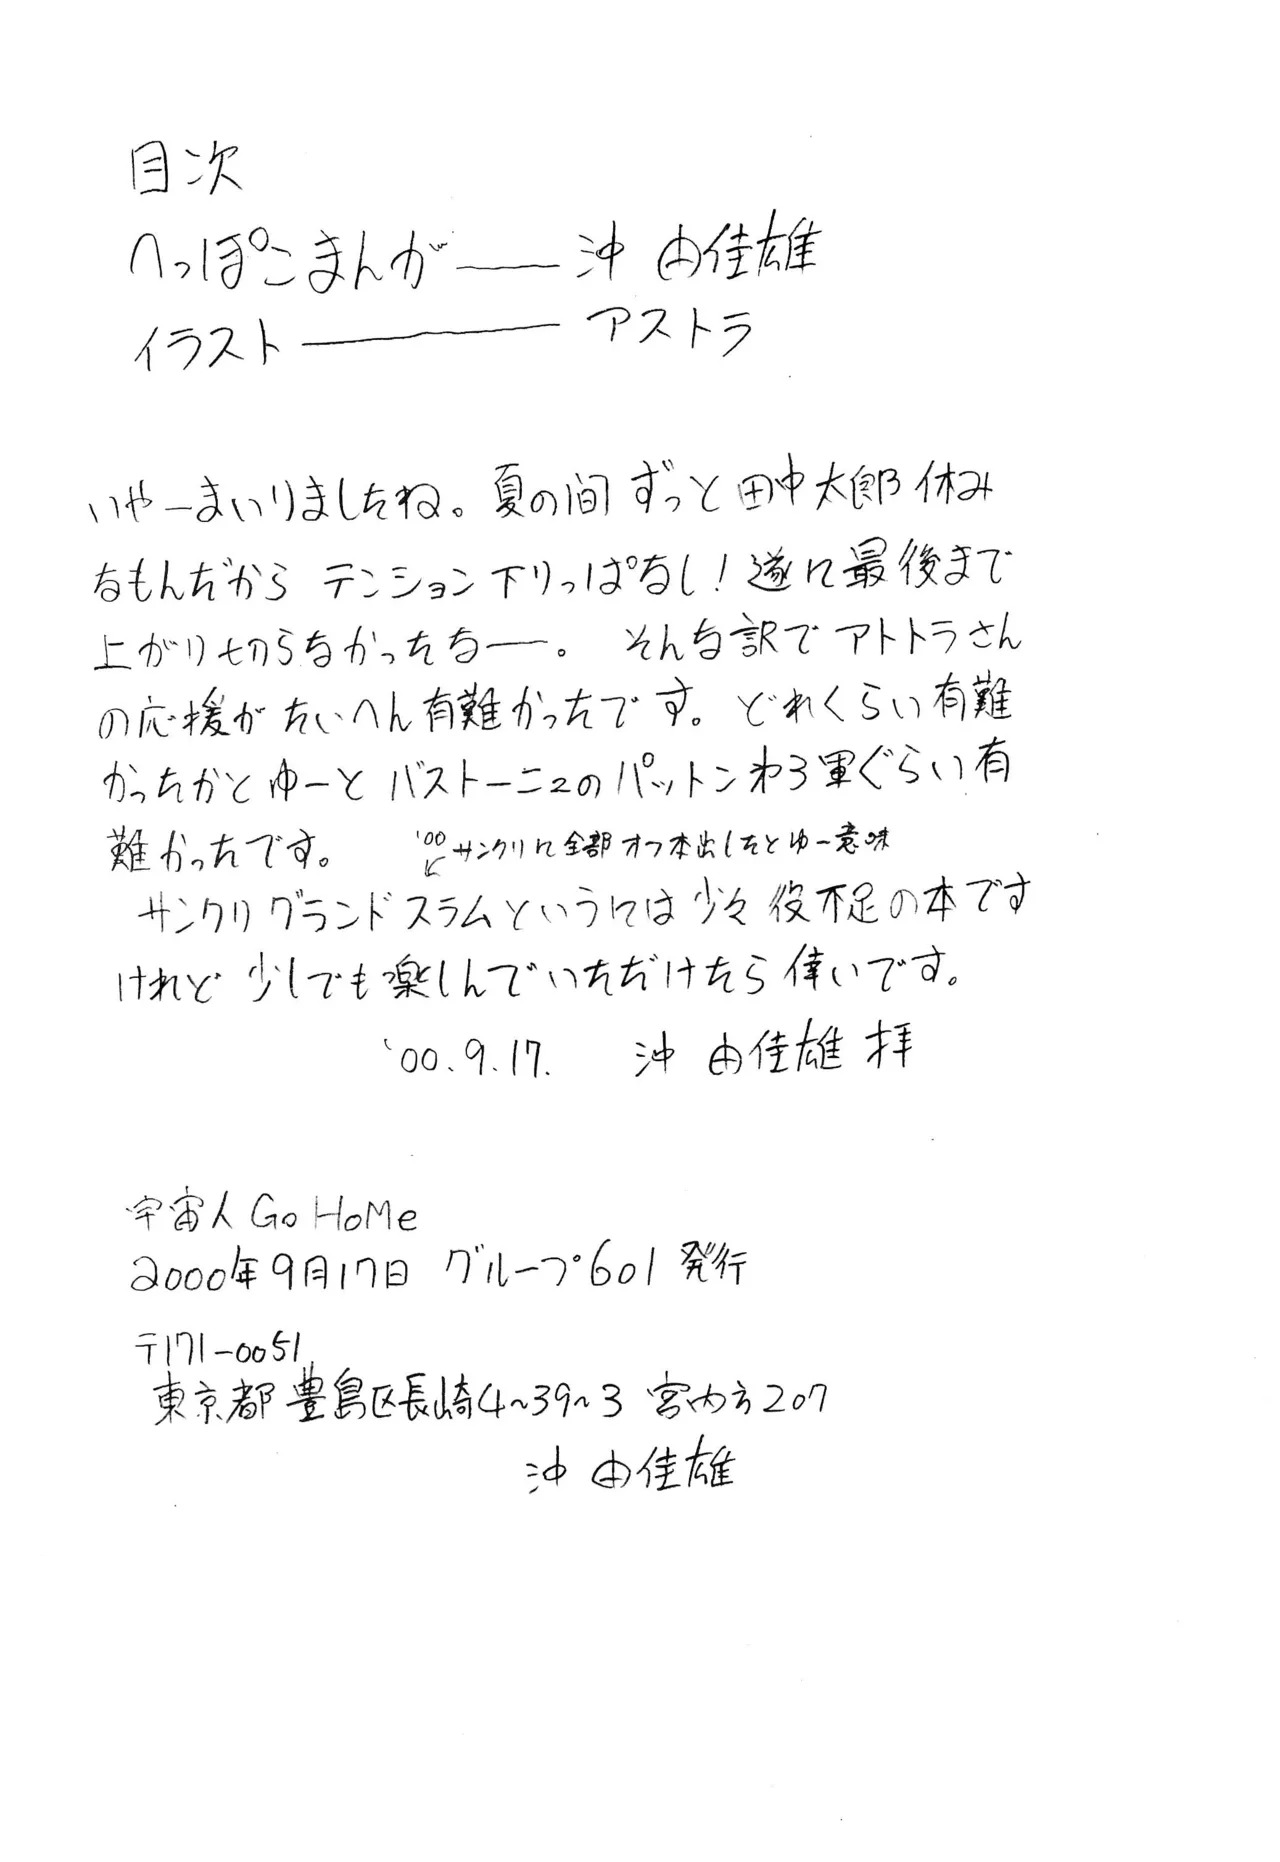 目次
へっぽこまんが——沖 由佳雄
イラスト————アストラ
いやーまいりましたね。夏の間ずっと田中太郎休み
なもんだから テンション下りっぱなし！遂に最後まで
上がり切らなかったなー。 そんな訳でアトトラさん
の応援がたいへん有難かったです。どれくらい有難
かったかとゆーと バストーニュのパットン第3軍ぐらい有
難かったです。
'00 サンクリに全部オフ本出したとゆー意味
サンクリグランドスラムというには少々役不足の本です
けれど 少しでも楽しんでいただけたら倖いです。
'00.9.17. 沖 由佳雄 拝
宇宙人 Go HoMe
2000年9月17日 グループ601 発行
〒171-0051
東京都豊島区長崎4~39~3 宮内方207
沖 由佳雄